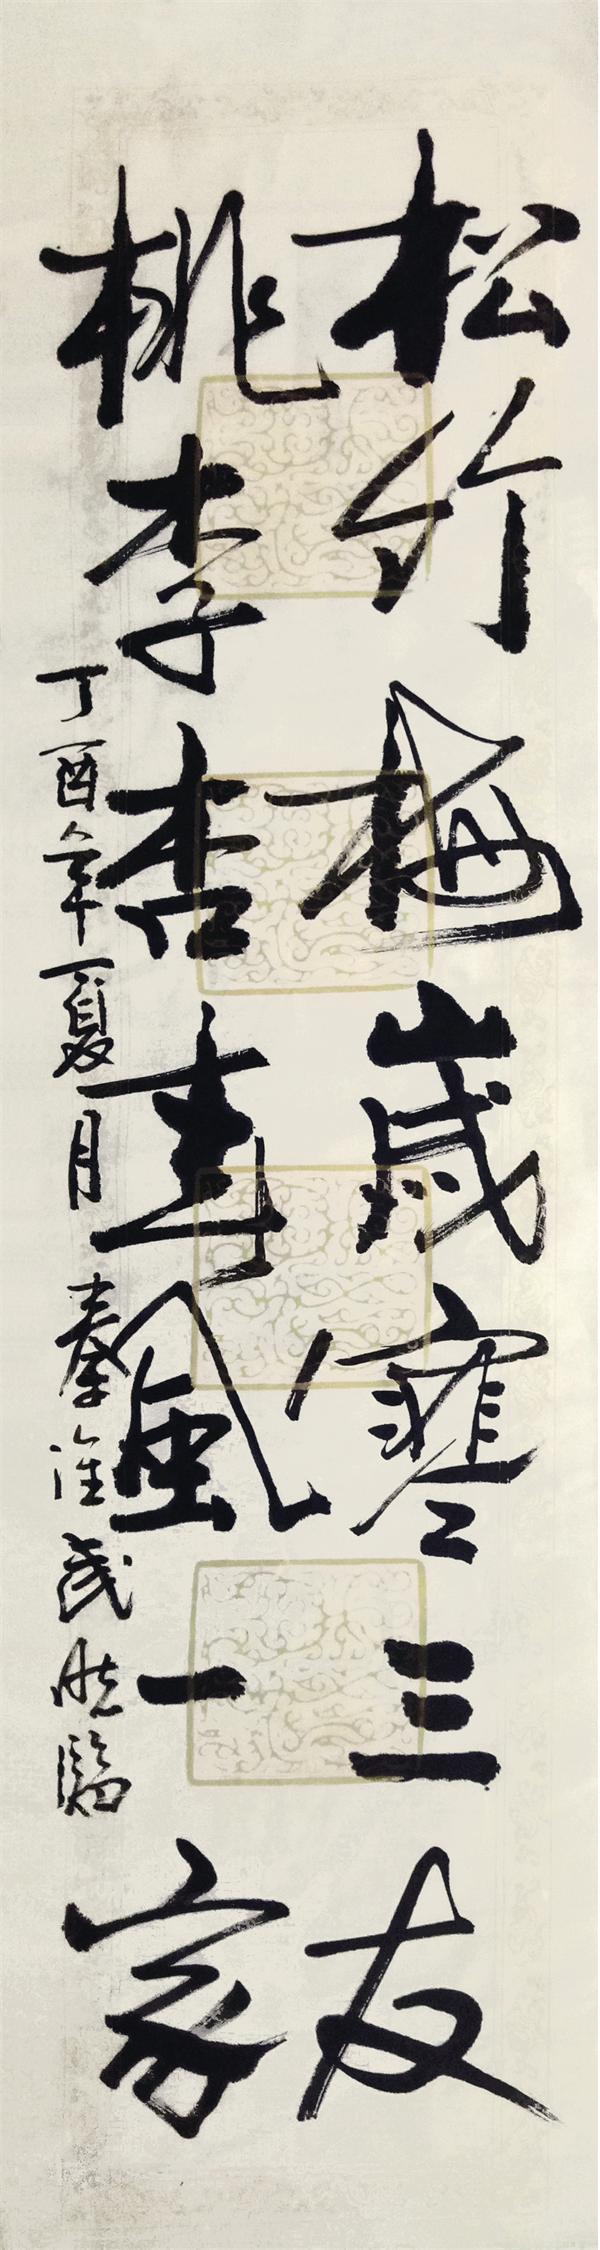 松竹梅歲寒三友
桃李杏春風一家
丁酉年夏月 秦淮 武 臨